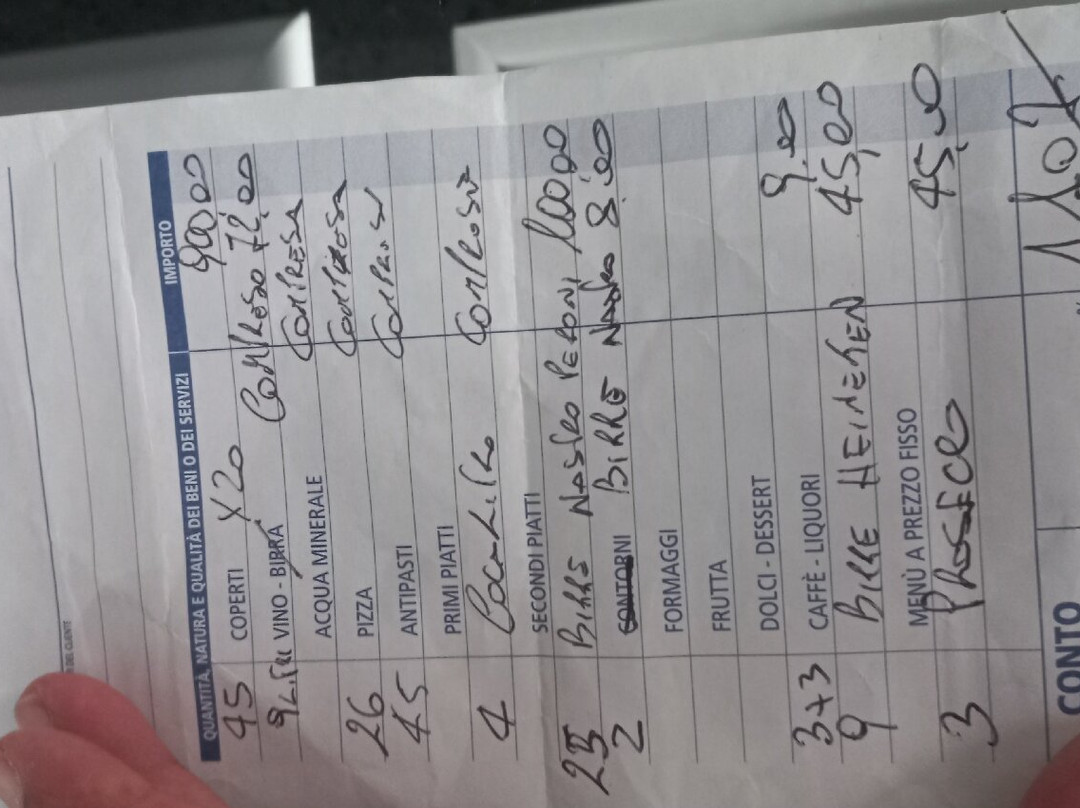 DEL CLIENTE
QUANTITÀ, NATURA E QUALITÀ DEI BENI O DEI SERVIZI IMPORTO
45 COPERTI x20 900,00
VINO - BIRRA COMPRESO 72,00
ACQUA MINERALE COMPRESA
26 PIZZA COMPRESA
45 ANTIPASTI COMPRESI
PRIMI PIATTI
4 COMPRESI
SECONDI PIATTI
25 BIRRE NASTRO PERONI 100,00
2 CONTORNI BIRRE NASTRO 8,00
FORMAGGI
FRUTTA
DOLCI - DESSERT
3+3 CAFFÈ - LIQUORI 9,00
9 BIRRE HEINEKEN 45,00
MENÙ A PREZZO FISSO
3 PROSECCO 45,00
CONTO